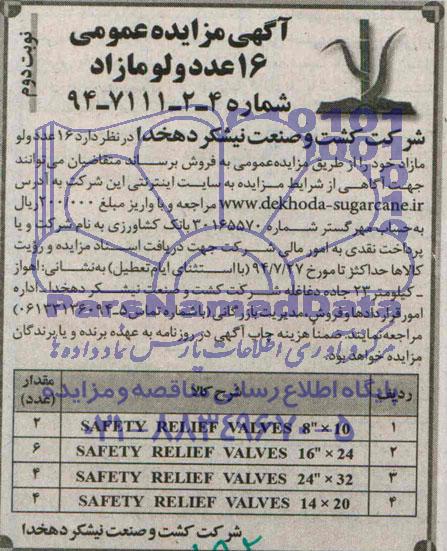 آگهی مزایده عمومی
۱۶ عدد ولو مازاد
شماره ۴-۲-۷۱۱۱-۹۴
نوبت دوم
شرکت کشت و صنعت نیشکر دهخدا در نظر دارد ۱۶ عدد ولو
مازاد خود را از طریق مزایده عمومی به فروش برساند متقاضیان می‌توانند
جهت آگاهی از شرایط مزایده به سایت اینترنتی این شرکت به آدرس
www.dekhoda-sugarcane.ir مراجعه و با واریز مبلغ ۲۰۰۰۰۰ ریال
به حساب مهر گستر شماره ۳۰۱۶۵۵۷۰ بانک کشاورزی به نام شرکت و یا
پرداخت نقدی به امور مالی شرکت جهت دریافت اسناد مزایده و رؤیت
کالاها حداکثر تا مورخ ۹۴/۷/۲۷ (با استثنای ایام تعطیل) به نشانی: اهواز
ـ کیلومتر ۲۳ جاده دغاغله شرکت کشت و صنعت نیشکر دهخدا ـ اداره
امور قراردادها و فروش، مدیریت بازرگانی (با شماره تماس
مراجعه نمایند. ضمنا هزینه چاپ آگهی در روزنامه به عهده برنده و یا برندگان
مزایده خواهد بود.
ردیف شرح کالا مقدار (عدد)
۱ SAFETY RELIEF VALVES 8"×10 ۲
۲ SAFETY RELIEF VALVES 16"×24 ۶
۳ SAFETY RELIEF VALVES 24"×32 ۴
۴ SAFETY RELIEF VALVES 14×20 ۴
شرکت کشت و صنعت نیشکر دهخدا
ParsNamadData
پایگاه اطلاع رسانی مناقصه و مزایده
۰۲۱-۸۸۳۴۹۶۷۰-۵